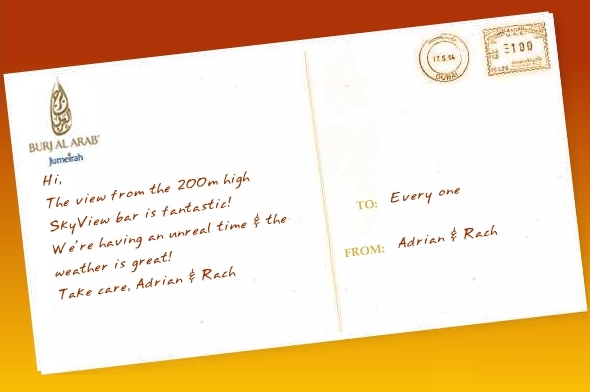 BURJ AL ARAB
Jumeirah
Hi,
The view from the 200m high
SkyView bar is fantastic!
We're having an unreal time & the
weather is great!
Take care, Adrian & Rach
17.5.04
DUBAI
U.A.E.
100
TO: Every one
FROM: Adrian & Rach